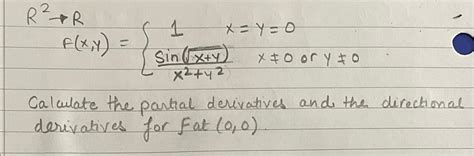 R² → R
f(x,y) = { 1 x = y = 0
sin(√x+y) / x²+y² x ≠ 0 or y ≠ 0
Calculate the partial derivatives and the directional
derivatives for f at (0,0).